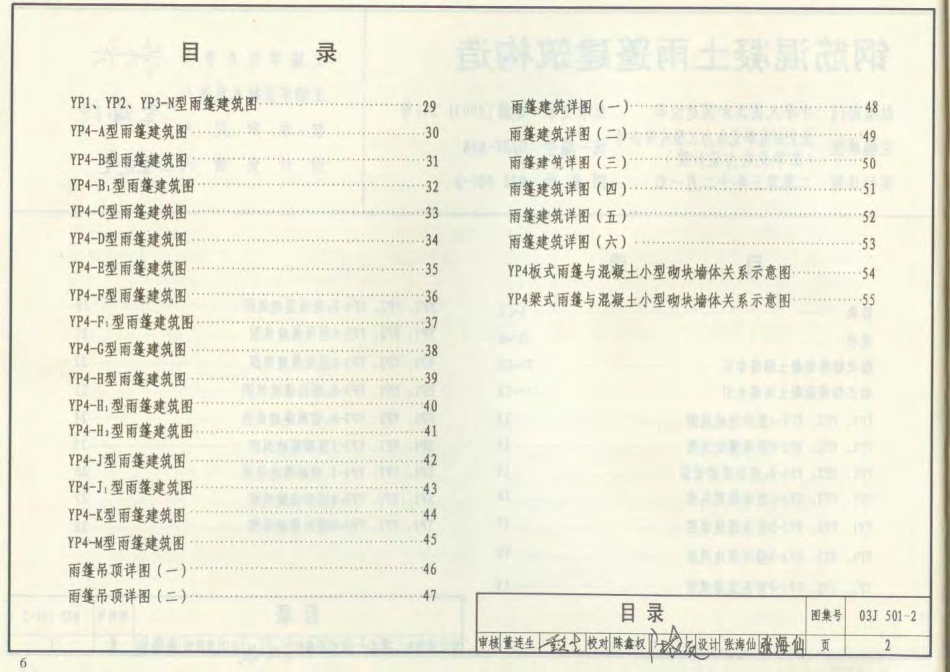 目 录
YP1、YP2、YP3-N型雨篷建筑图 29
YP4-A型雨篷建筑图 30
YP4-B型雨篷建筑图 31
YP4-B₁型雨篷建筑图 32
YP4-C型雨篷建筑图 33
YP4-D型雨篷建筑图 34
YP4-E型雨篷建筑图 35
YP4-F型雨篷建筑图 36
YP4-F₁型雨篷建筑图 37
YP4-G型雨篷建筑图 38
YP4-H型雨篷建筑图 39
YP4-H₁型雨篷建筑图 40
YP4-H₂型雨篷建筑图 41
YP4-J型雨篷建筑图 42
YP4-J₁型雨篷建筑图 43
YP4-K型雨篷建筑图 44
YP4-M型雨篷建筑图 45
雨篷吊顶详图（一） 46
雨篷吊顶详图（二） 47
雨篷建筑详图（一） 48
雨篷建筑详图（二） 49
雨篷建筑详图（三） 50
雨篷建筑详图（四） 51
雨篷建筑详图（五） 52
雨篷建筑详图（六） 53
YP4板式雨篷与混凝土小型砌块墙体关系示意图 54
YP4梁式雨篷与混凝土小型砌块墙体关系示意图 55
目 录 图集号 03J 501-2
审核 董连生 校对 陈鑫权 设计 张海仙 张海仙 页 2
6